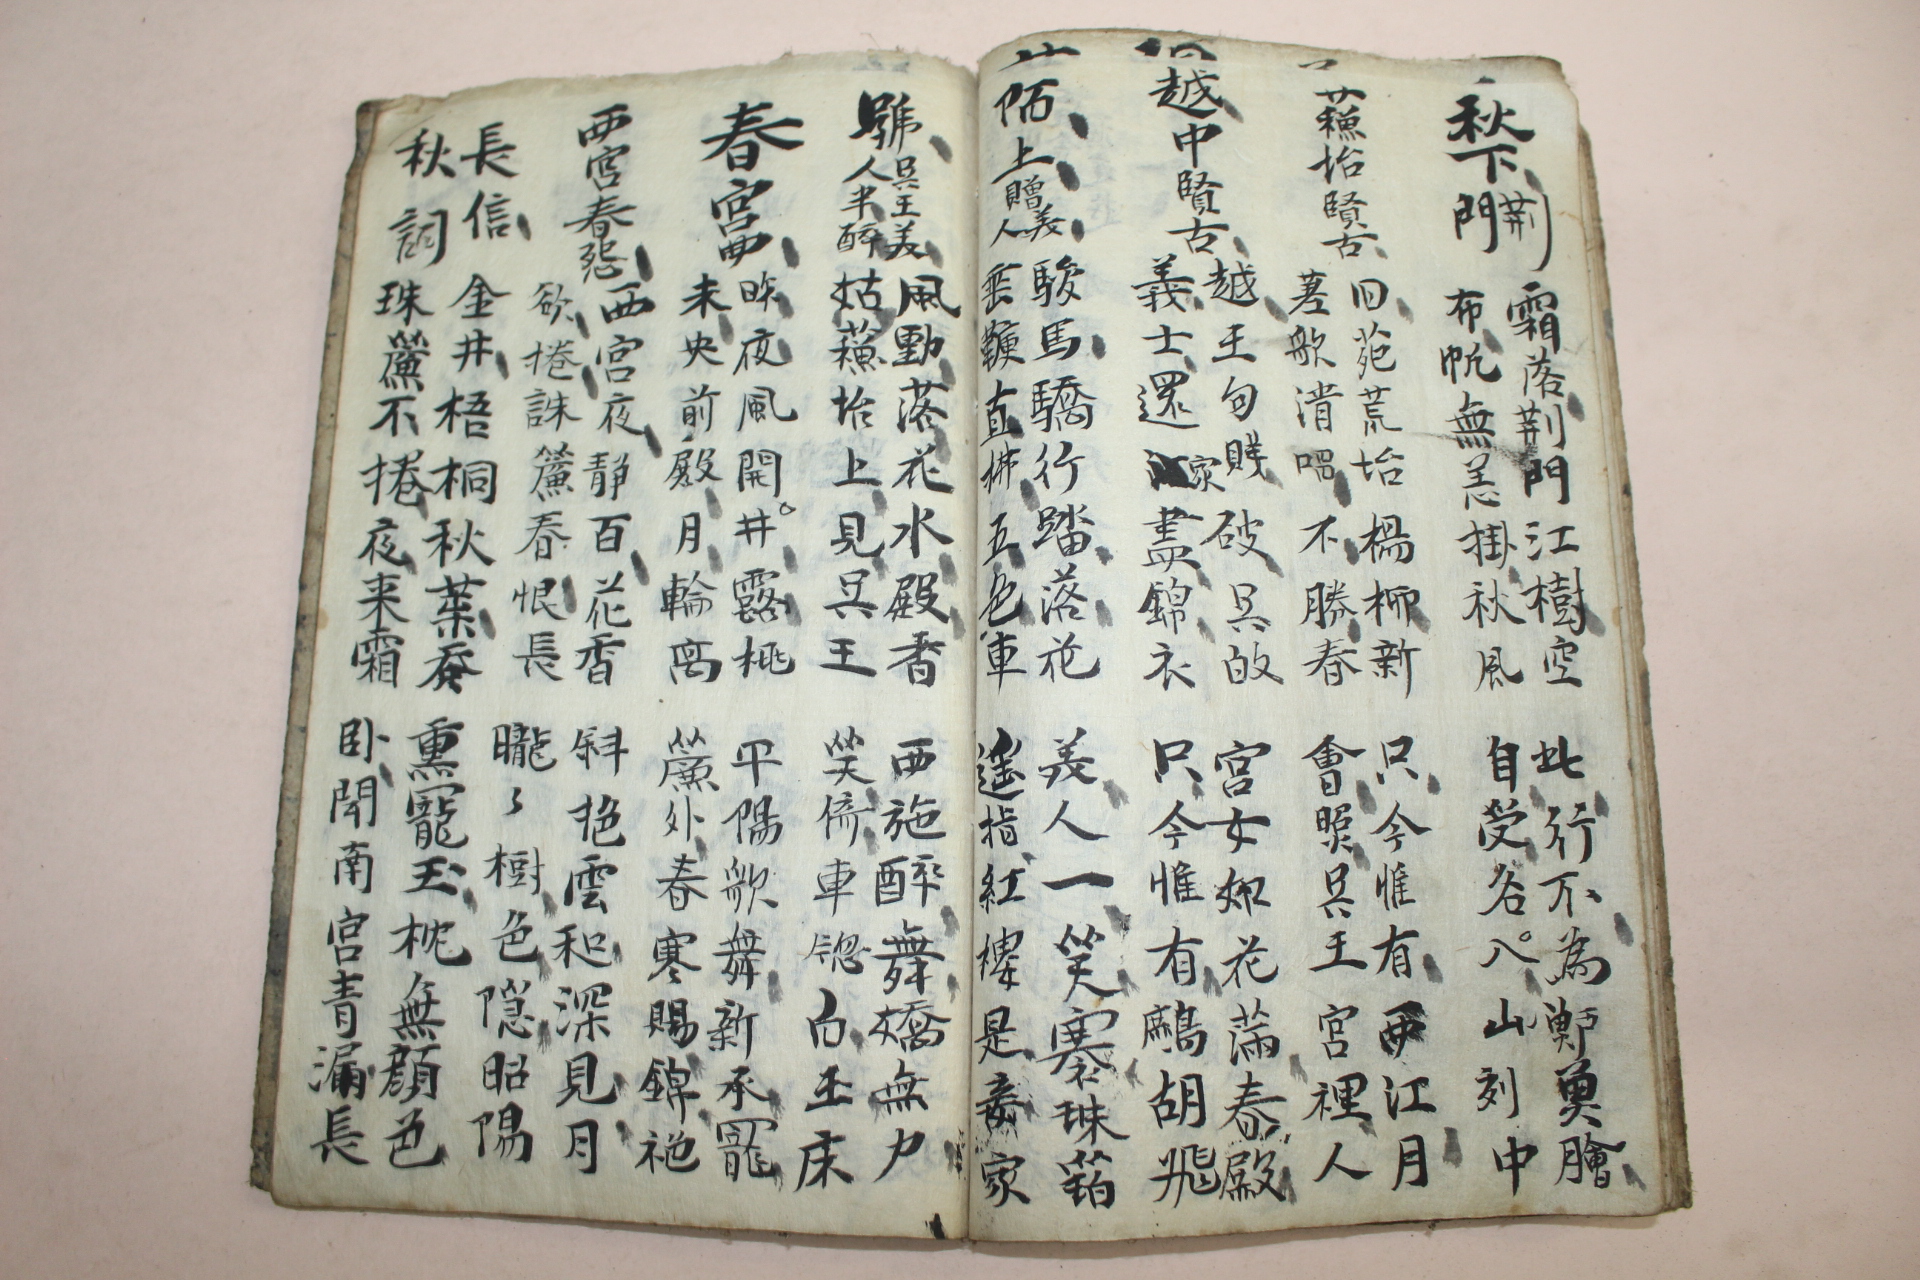 秋下荊門
霜落荆門江樹空
布帆無恙掛秋風
此行不為鄭奠膾
自受名入山刻中
蘓坮賢古
旧苑荒坮楊柳新
葚歌清唱不勝春
只今惟有西江月
會照呉王宮裡人
越中賢古
越王句賤破呉敀
義士還家盡錦衣
宮女如花滿春殿
只今惟有鷓胡飛
陌上贈義人
駿馬驕行踏落花
垂鞭直拂五色車
義人一笑褰珠箔
遙指紅樓是妾家
號呉王美人半醉
風動落花水殿香
姑蘓坮上見呉王
西施醉舞嬌無力
笑倚車窓白玉床
春宮西
昨夜風開井露桃
未央前殿月輪高
平陽歌舞新承寵
簾外春寒賜錦袍
西宮春怨
西宮夜静百花香
欲捲誅簾春恨長
斜抱雲和深見月
朧々樹色隠昭陽
長信秋詞
金井梧桐秋葉黄
珠簾不捲夜来霜
熏寵玉枕無顔色
卧聞南宮青漏長